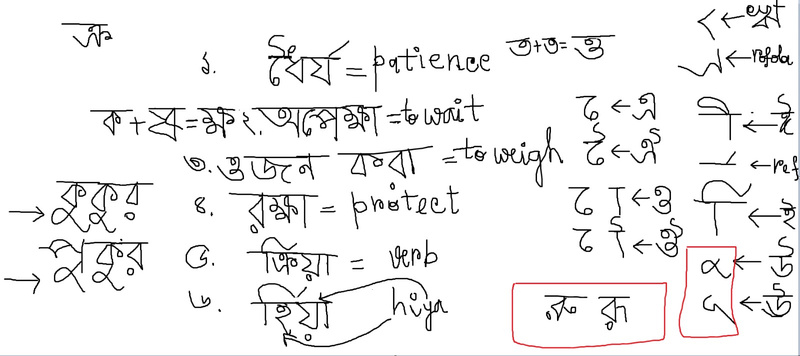 ১. ধৈর্য = patience ত+ত= ত্ত
ক + ষ = ক্ষ ২. অপেক্ষা = to wait
৩. ওজন করা = to weigh
→ কুকুর
৪. রক্ষা = protect
→ পুকুর
৫. ক্রিয়া = verb
৬. হিয়া hiya
ে ← এ
ৈ ← ঐ
ো ← ও
ৌ ← ঔ
রু রূ
ী ← ঈ
← ref
ি ← ই
ু ← উ
ূ ← ঊ